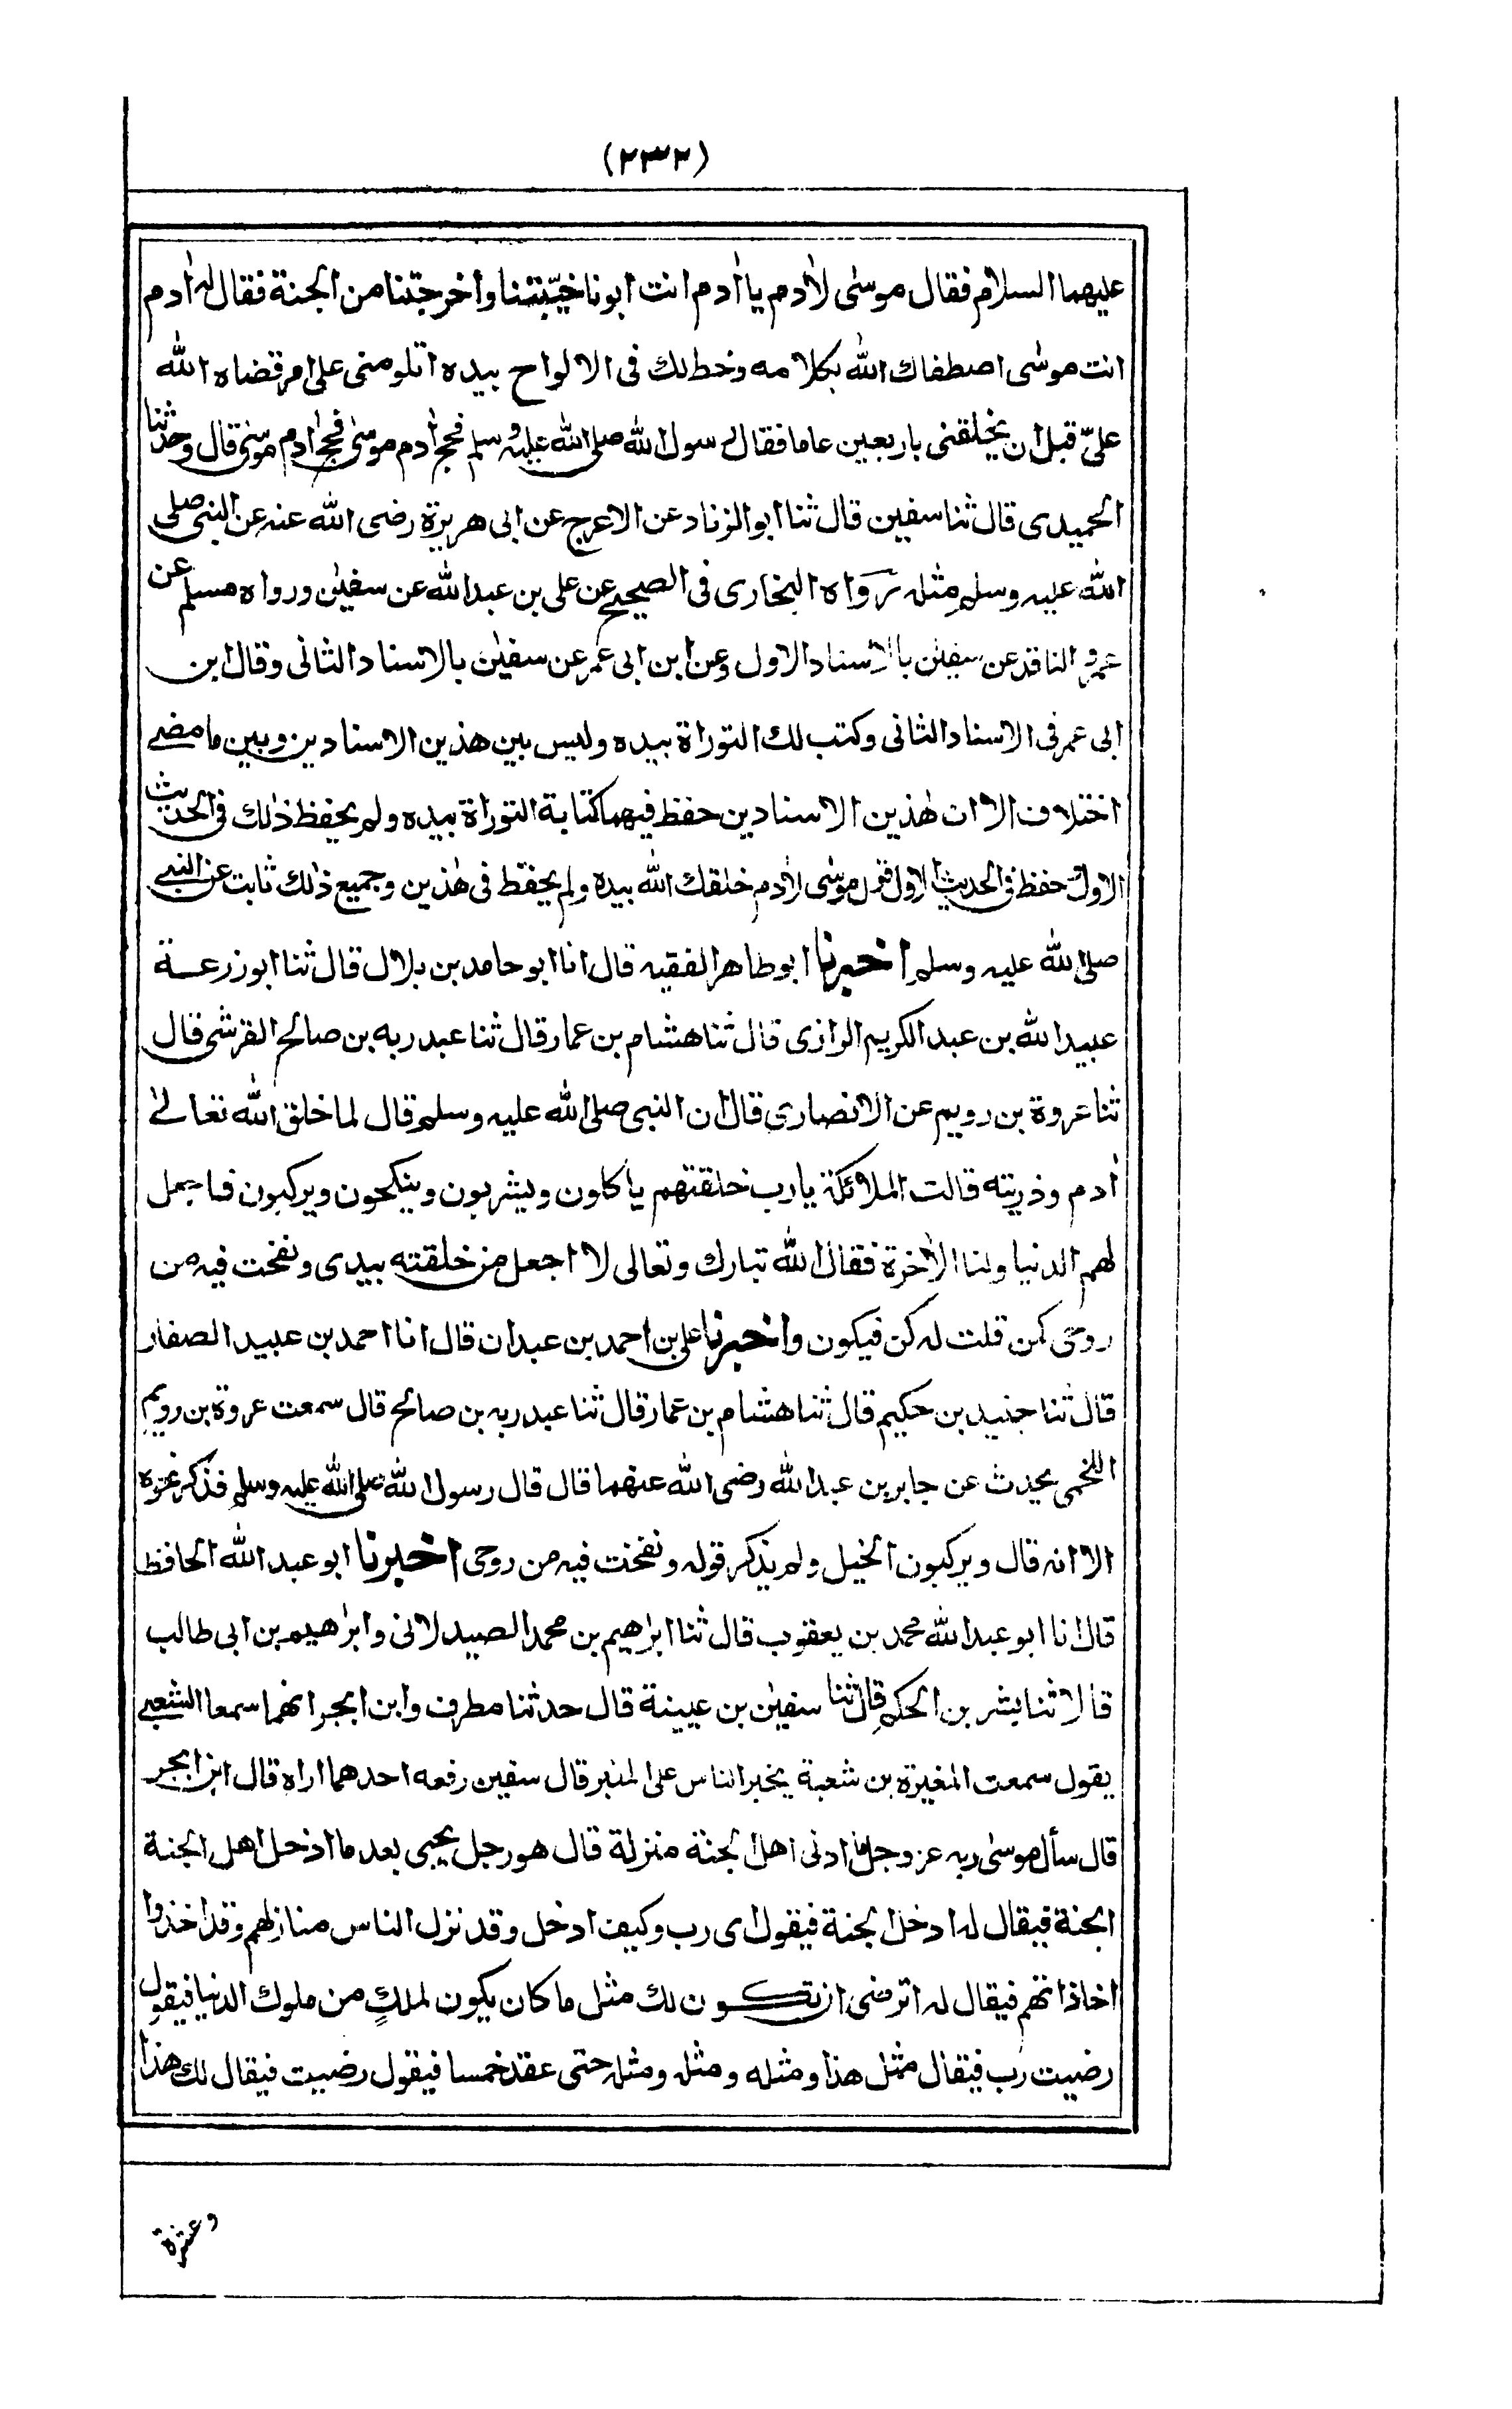 (٢٣٢)
عليهما السلام فقال موسٰى لاٰدم يا اٰدم انت ابونا خيّبتنا واخرجتنا من الجنة فقال له اٰدم
انت موسٰى اصطفاك الله بكلامه وخط لك فى الالواح بيده اتلومنى على امر قضاه الله
علىّ قبل ان يخلقنى باربعين عاما فقال رسول الله صلى الله عليه وسلم فحج اٰدم موسٰى فحج اٰدم موسٰى قال وحدثنا
الحميدى قال ثنا سفيٰن قال ثنا ابو الزناد عن الاعرج عن ابى هريرة رضى الله عنه عن النبى صلى
الله عليه وسلم مثله رواه البخارى فى الصحيح عن على بن عبد الله عن سفيٰن ورواه مسلم عن
عمرو الناقد عن سفيٰن بالاسناد الاول وعن ابن ابى عمر عن سفيٰن بالاسناد الثانى وقال ابن
ابى عمر فى الاسناد الثانى وكتب لك التوراة بيده وليس بين هذين الاسنادين وبين ما مضے
اختلاف الا ان هٰذين الاسنادين حفظ فيهما كتابة التوراة بيده ولم يحفظ ذٰلك فى الحديث
الاول وحفظ فى الحديث الاول قول موسٰى لاٰدم خلقك الله بيده ولم يحفظ فى هٰذين وجميع ذٰلك ثابت عن النبے
صلى الله عليه وسلم اخبرنا ابو طاهر الفقيه قال انا ابو حامد بن بلال قال ثنا ابو زرعة
عبيد الله بن عبد الكريم الرازى قال ثنا هشام بن عمار قال ثنا عبد ربه بن صالح القرشى قال
ثنا عروة بن رويم عن الانصارى قال ان النبى صلى الله عليه وسلم قال لما خلق الله تعالےٰ
اٰدم وذريته قالت الملائكة يا رب خلقتهم ياكلون ويشربون وينكحون ويركبون فاجعل
لهم الدنيا ولنا الاٰخرة فقال الله تبارك وتعالى لا اجعل من خلقته بيدى ونفخت فيه من
روحى كمن قلت له كن فيكون واخبرنا على بن احمد بن عبدان قال انا احمد بن عبيد الصفار
قال ثنا جنيد بن حكيم قال ثنا هشام بن عمار قال ثنا عبد ربه بن صالح قال سمعت عروة بن رويم
اللخمى يحدث عن جابر بن عبد الله رضى الله عنهما قال قال رسول الله صلى الله عليه وسلم فذكر نحوه
الا انه قال ويركبون الخيل ولم يذكر قوله ونفخت فيه من روحى اخبرنا ابو عبد الله الحافظ
قال انا ابو عبد الله محمد بن يعقوب قال ثنا ابرٰهيم بن محمد الصيدلانى وابرٰهيم بن ابى طالب
قالا ثنا بشر بن الحكم قال ثنا سفيٰن بن عيينة قال حدثنا مطرف وابن ابجر انهما سمعا الشعبے
يقول سمعت المغيرة بن شعبة يخبر الناس على المنبر قال سفين رفعه احدهما اراه قال ابن ابجر
قال سأل موسٰى ربه عز وجل ما ادنى اهل الجنة منزلة قال هو رجل يجيى بعد ما ادخل اهل الجنة
الجنة فيقال له ادخل الجنة فيقول اى رب وكيف ادخل وقد نزل الناس منازلهم وقد اخذوا
اخاذاتهم فيقال له اترضى ان تكون لك مثل ما كان يكون لملكٍ من ملوك الدنيا فيقول
رضيت رب فيقال مثل هذا ومثله ومثله ومثله حتى عقد خمسا فيقول رضيت فيقال لك هذا
وعشرة